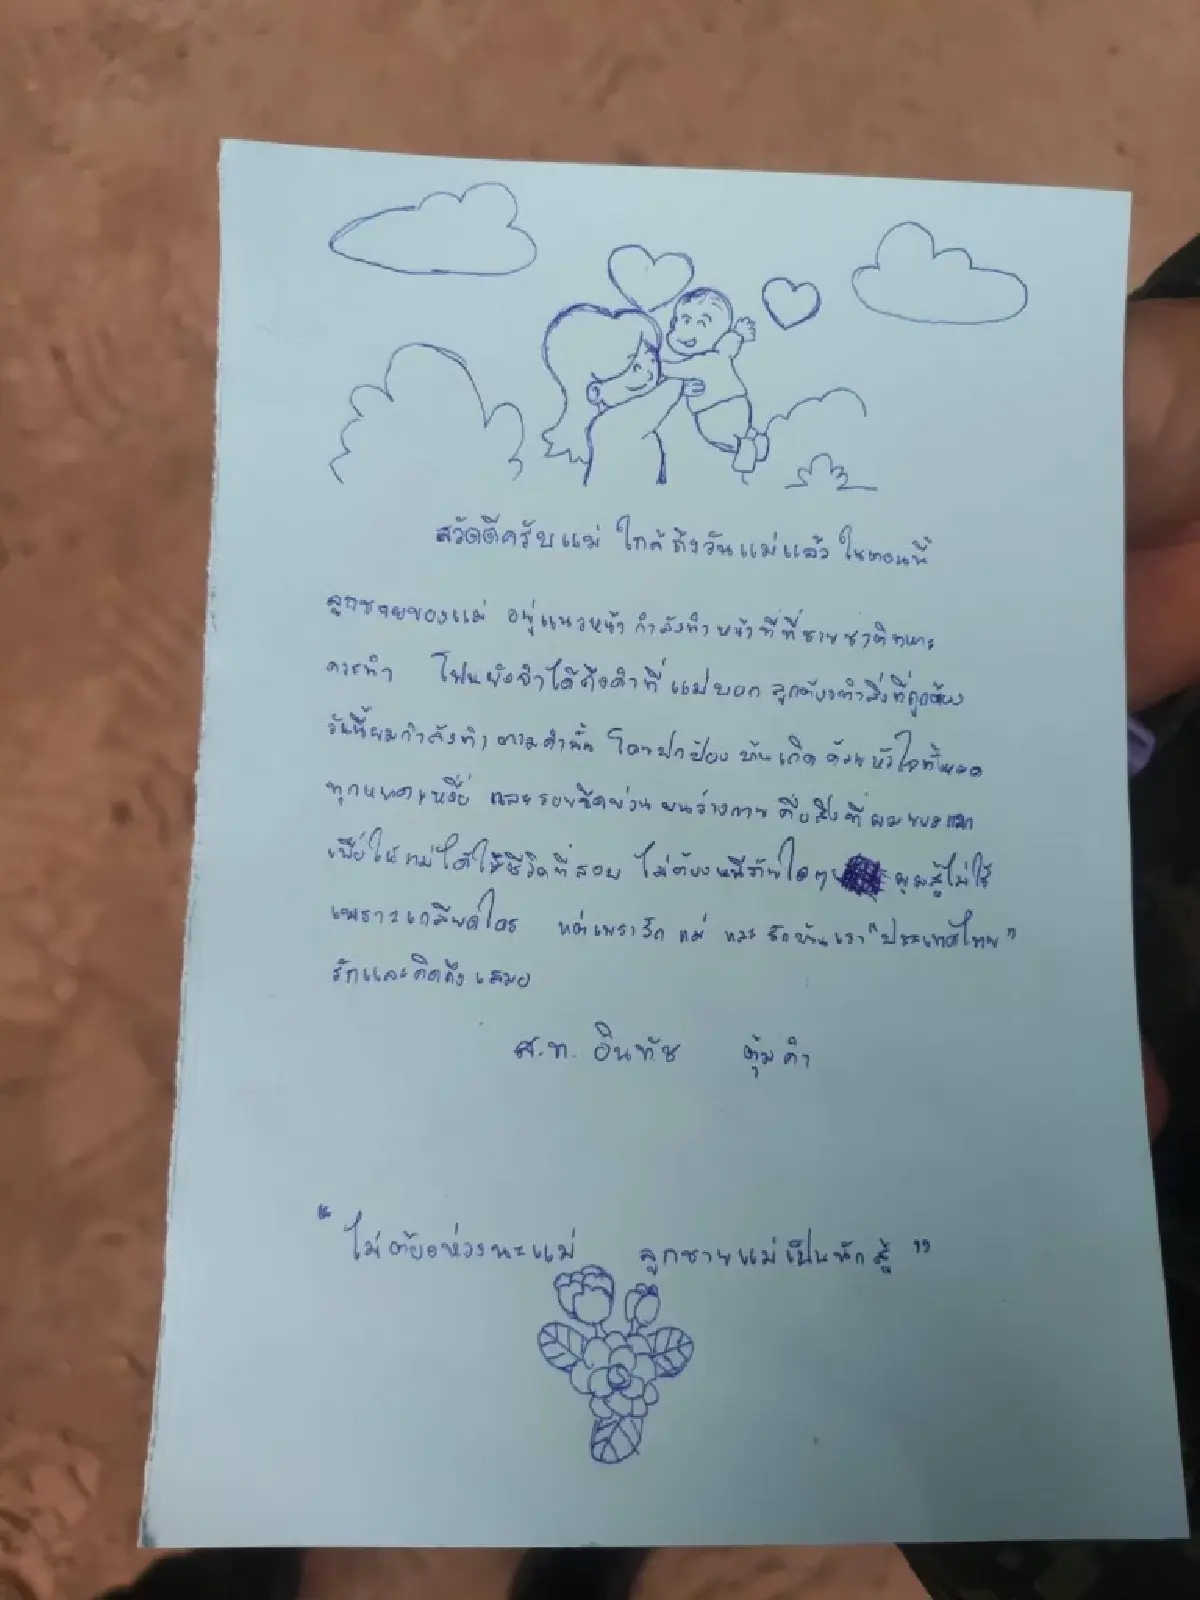 สวัดดีครับแม่ ใกล้ถึงวันแม่แล้ว ในตอนนี้
ลูกชายของแม่ อยู่แนวหน้า กำลังทำหน้าที่ที่ชายชาติทหาร
ควรทำ โฟนยังจำได้ถึงคำที่แม่บอก ลูกต้องทำสิ่งที่ถูกต้อง
วันนี้ผมกำลังทำตามคำนั้น โดยปกป้องบ้านเกิด ด้วยหัวใจทั้งหมด
ทุกหยดเหงื่อ และรอยขีดข่วนบนร่างกาย คือสิ่งที่ผมยอมแลก
เพื่อให้แม่ได้ใช้ชีวิตที่สงบ ไม่ต้องหนีภัยใดๆ ผมสู้ไม่ใช่
เพราะเกลียดใคร แต่เพราะรัก แม่ และ รักบ้านเรา "ประเทศไทย"
รักและคิดถึงเสมอ
ส.ท. อินทัช ตุ้มคำ
" ไม่ต้องห่วงนะแม่ ลูกชายแม่เป็นนักสู้ "